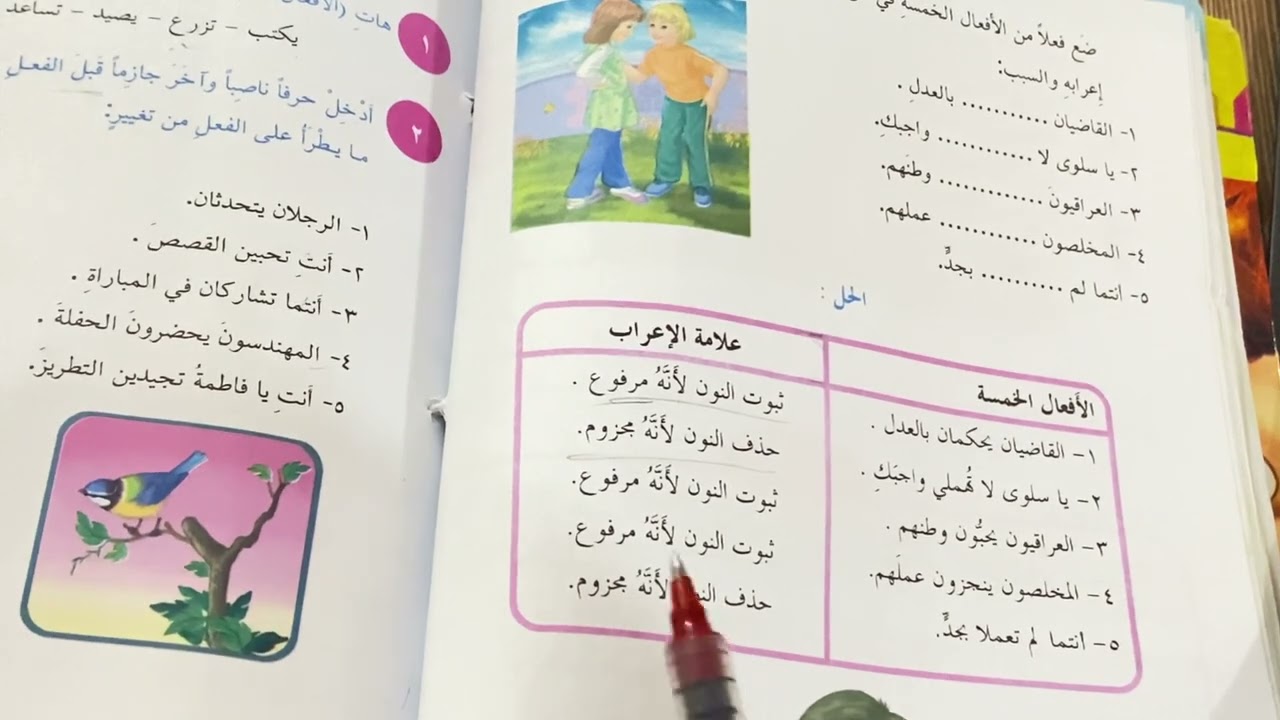 ضَع فعلاً من الأفعال الخمسةِ في
إعرابهِ والسبب:
١- القاضيان .......... بالعدلِ .
٢- يا سلوى لا ............ واجبكِ.
٣- العراقيونَ ............ وطنَهم.
٤- المخلصون ............ عملهم.
٥- انتما لم .......... بجدٍّ.
الحل :
الأَفعال الخمسة
علامة الإعراب
١- القاضيان يحكمان بالعدل .
ثبوت النون لأَنَّهُ مرفوع .
٢- يا سلوى لا تُهملي واجبَكِ .
حذف النون لأَنَّهُ مجزوم.
٣- العراقيون يحبُّون وطنهم .
ثبوت النون لأَنَّهُ مرفوع.
٤- المخلصون ينجزون عملَهم.
ثبوت النون لأَنَّهُ مرفوع.
٥- أنتما لم تعملا بجدٍّ.
حذف لأَنَّهُ مجزوم.
١
هاتِ
يكتب – تزرع – يصيد – تساعد
٢
أدْخِلْ حرفاً ناصِباً وآخَرَ جازِماً قبلَ الفعلِ
ما يطْرَأُ على الفعلِ من تغييرٍ:
١- الرجلان يتحدثان.
٢- أنتِ تحبين القصصَ .
٣- أنتُما تشاركان في المباراةِ .
٤- المهندسونَ يحضرونَ الحفلةَ .
٥- أنتِ يا فاطمةُ تجيدين التطريزَ.